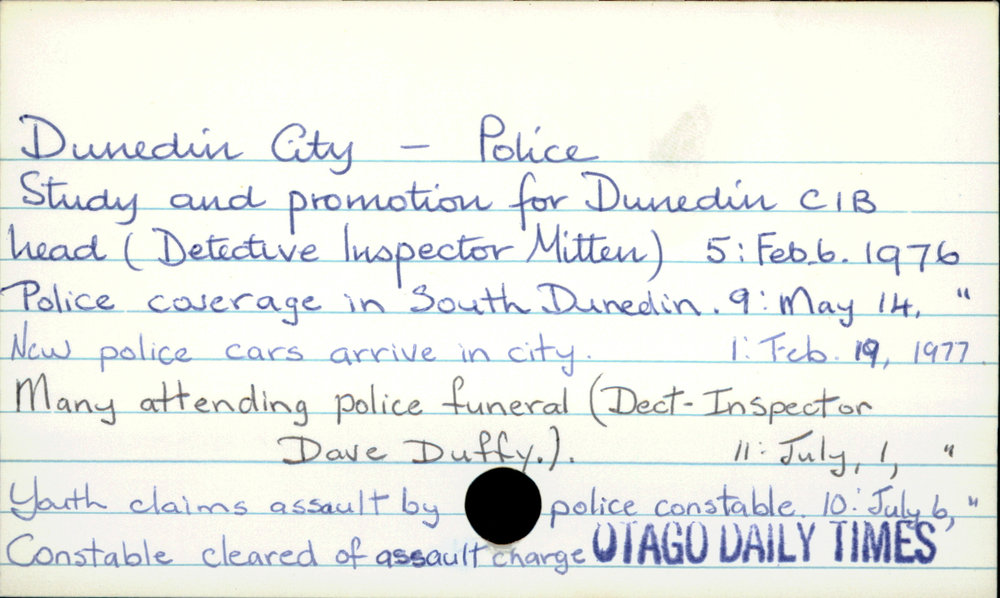 Dunedin City — Police
Study and promotion for Dunedin CIB
head (Detective Inspector Mitten) 5: Feb. 6. 1976
Police coverage in South Dunedin. 9: May 14, "
New police cars arrive in city. 1: Feb. 19, 1977.
Many attending police funeral (Dect-Inspector
Dave Duffy.). 11: July, 1, "
Youth claims assault by police constable. 10: July 6, "
Constable cleared of assault charge OTAGO DAILY TIMES